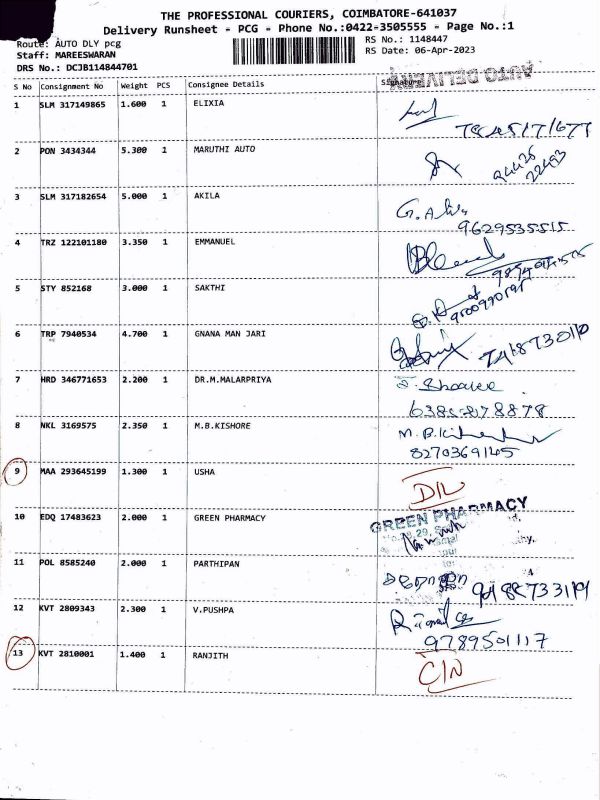 THE PROFESSIONAL COURIERS, COIMBATORE-641037
Delivery Runsheet - PCG - Phone No.:0422-3505555 - Page No.:1
Route: AUTO DLY pcg
RS No.: 1148447
Staff: MAREESWARAN
RS Date: 06-Apr-2023
DRS No.: DCJB114844701
AUTO DELIVERY
S No Consignment No Weight PCS Consignee Details Signature
1 SLM 317149865 1.600 1 ELIXIA
2 PON 3434344 5.300 1 MARUTHI AUTO
94425
22493
3 SLM 317182654 5.000 1 AKILA
9629535515
4 TRZ 122101180 3.350 1 EMMANUEL
5 STY 852168 3.000 1 SAKTHI
6 TRP 7940534 4.700 1 GNANA MAN JARI
7 HRD 346771653 2.200 1 DR.M.MALARPRIYA
8 NKL 3169575 2.350 1 M.B.KISHORE
M.B.
8270369145
9 MAA 293645199 1.300 1 USHA
D/L
10 EDQ 17483623 2.000 1 GREEN PHARMACY
GREEN PHARMACY
11 POL 8585240 2.000 1 PARTHIPAN
12 KVT 2809343 2.300 1 V.PUSHPA
9789501117
13 KVT 2810001 1.400 1 RANJITH
C/N